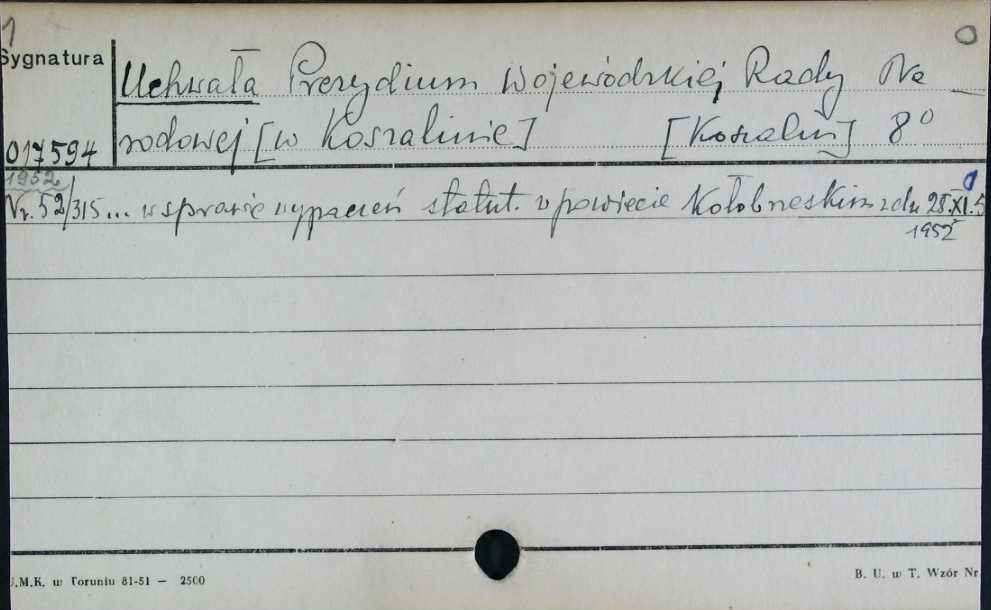 1
Sygnatura
Uchwała Prezydium Wojewódzkiej Rady Na-
017594
rodowej [w Koszalinie] [Koszalin] 8°
1952
Nr. 52/315 ... w sprawie statut. w powiecie Kołobrzeskim z dn 28.XI.5
1952
U.M.K. w Toruniu 81-51 — 2500
B. U. w T. Wzór Nr